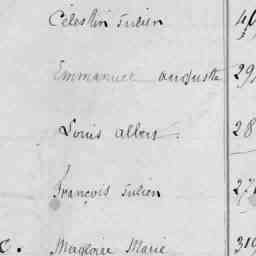 Célestin Julien
Emmanuel auguste 29
Louis Albert. 28
François Julien 27
c. Magloire Marie 319